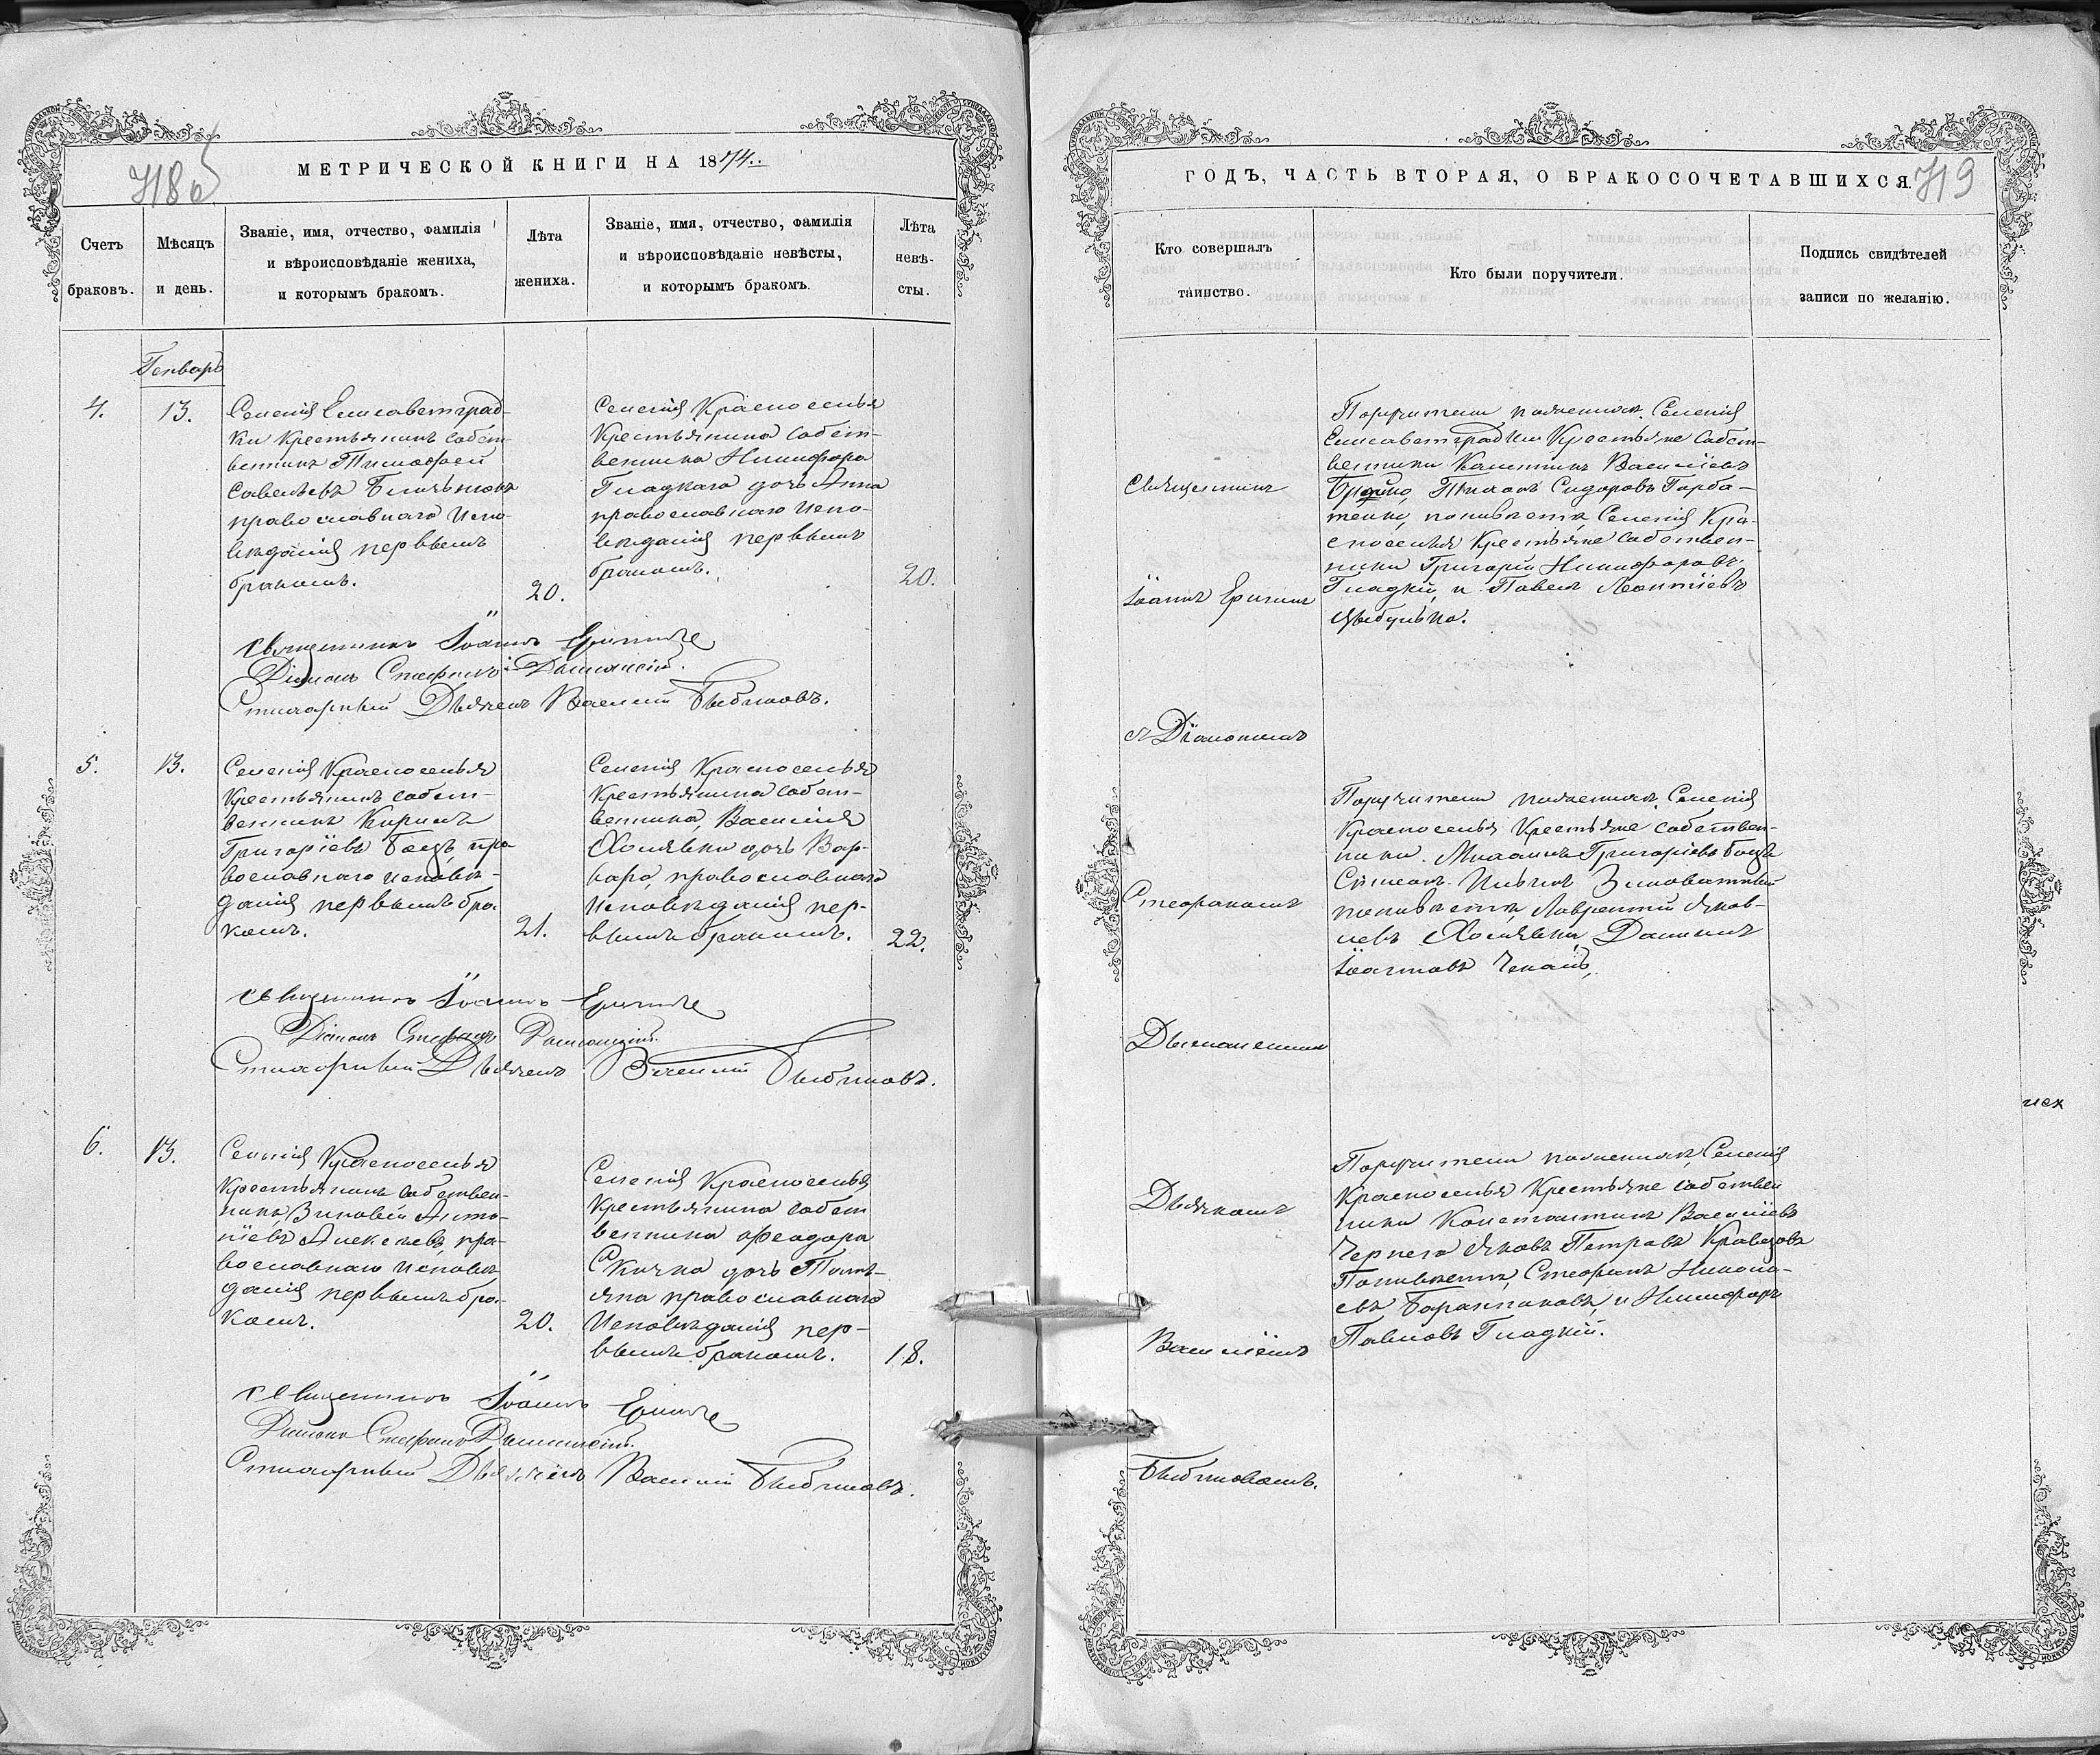 718 об
МЕТРИЧЕСКОЙ КНИГИ НА 1874..
Счетъ браковъ.
Мѣсяцъ и день.
Званіе, имя, отчество, фамилія
и вѣроисповѣданіе жениха,
и которымъ бракомъ.
Лѣта жениха.
Званіе, имя, отчество, фамилія
и вѣроисповѣданіе невѣсты,
и которымъ бракомъ.
Лѣта невѣ-
сты.
Генварь
4.
13.
Селенія Елисаветград-
ки Крестьянинъ собст-
венникъ Тимофей
Савельевъ
православнаго испо-
вѣданія первымъ
бракомъ.
20.
Селенія Красноселья
Крестьянина собст-
венника Никифора
Гладкаго дочь Анна
православнаго испо-
вѣданія первымъ
бракомъ.
20.
Священникъ Іоаннъ
Діаконъ Стефанъ
Стихарный Дьячекъ Василій
5.
13.
Селенія Красноселья
Крестьянинъ собст-
венникъ Кирилъ
Григоріевъ Боцъ, пра
вославнаго исповѣ-
данія первымъ бра-
комъ.
21.
Селенія Красноселья
Крестьянина собст-
венника, Василія
Хомявки дочь Вар-
вара, православнаго
исповѣданія пер-
вымъ бракомъ.
22.
Священникъ Іоаннъ
Діаконъ Стефанъ
Стихарный Дьячекъ Василій
6.
13.
Селенія Красноселья
Крестьянинъ собствен-
никъ, Зиновей Анто-
ніевъ Алексѣевъ, пра-
вославнаго исповѣ-
данія первымъ бра-
комъ.
20.
Селенія Красноселья
Крестьянина собст
венника Феодора
Скичка дочь Тать-
яна православнаго
исповѣданія пер-
вымъ бракомъ.
18.
Священникъ Іоаннъ
Діаконъ Стефанъ
Стихарный Дьячекъ Василій
719
ГОДЪ, ЧАСТЬ ВТОРАЯ, О БРАКОСОЧЕТАВШИХСЯ.
Кто совершалъ
таинство.
Кто были поручители.
Подпись свидѣтелей
записи по желанію.
Священникъ
Іоаннъ
съ Діакономъ
Стефаномъ
Дьячкомъ
Василіемъ
Поручители по женихѣ, Селенія
Елисаветградки Крестьяне собст-
венники Василіевъ
Сидоровъ Горба-
тенко, по невѣстѣ, Селенія Кра-
сноселья Крестьяне собствен-
ники Григорій Никифоровъ
Гладкій, и Павелъ Леонтіевъ
Цыбулька.
Поручители по женихѣ, Селенія
Красноселья Крестьяне собствен-
ники. Михаилъ Григоріевъ Боцъ
по невѣстѣ, Лаврентій Яков-
левъ Хомявка, Даніилъ
Іоанновъ Чекалъ,
Поручители по женихѣ, Селенія
Красноселья Крестьяне собствен
ники Константинъ Василіевъ
Чернега Яковъ Петровъ Кравцовъ
По невѣстѣ, Стефанъ Никола-
евъ и Никифоръ
Павловъ Гладкій.